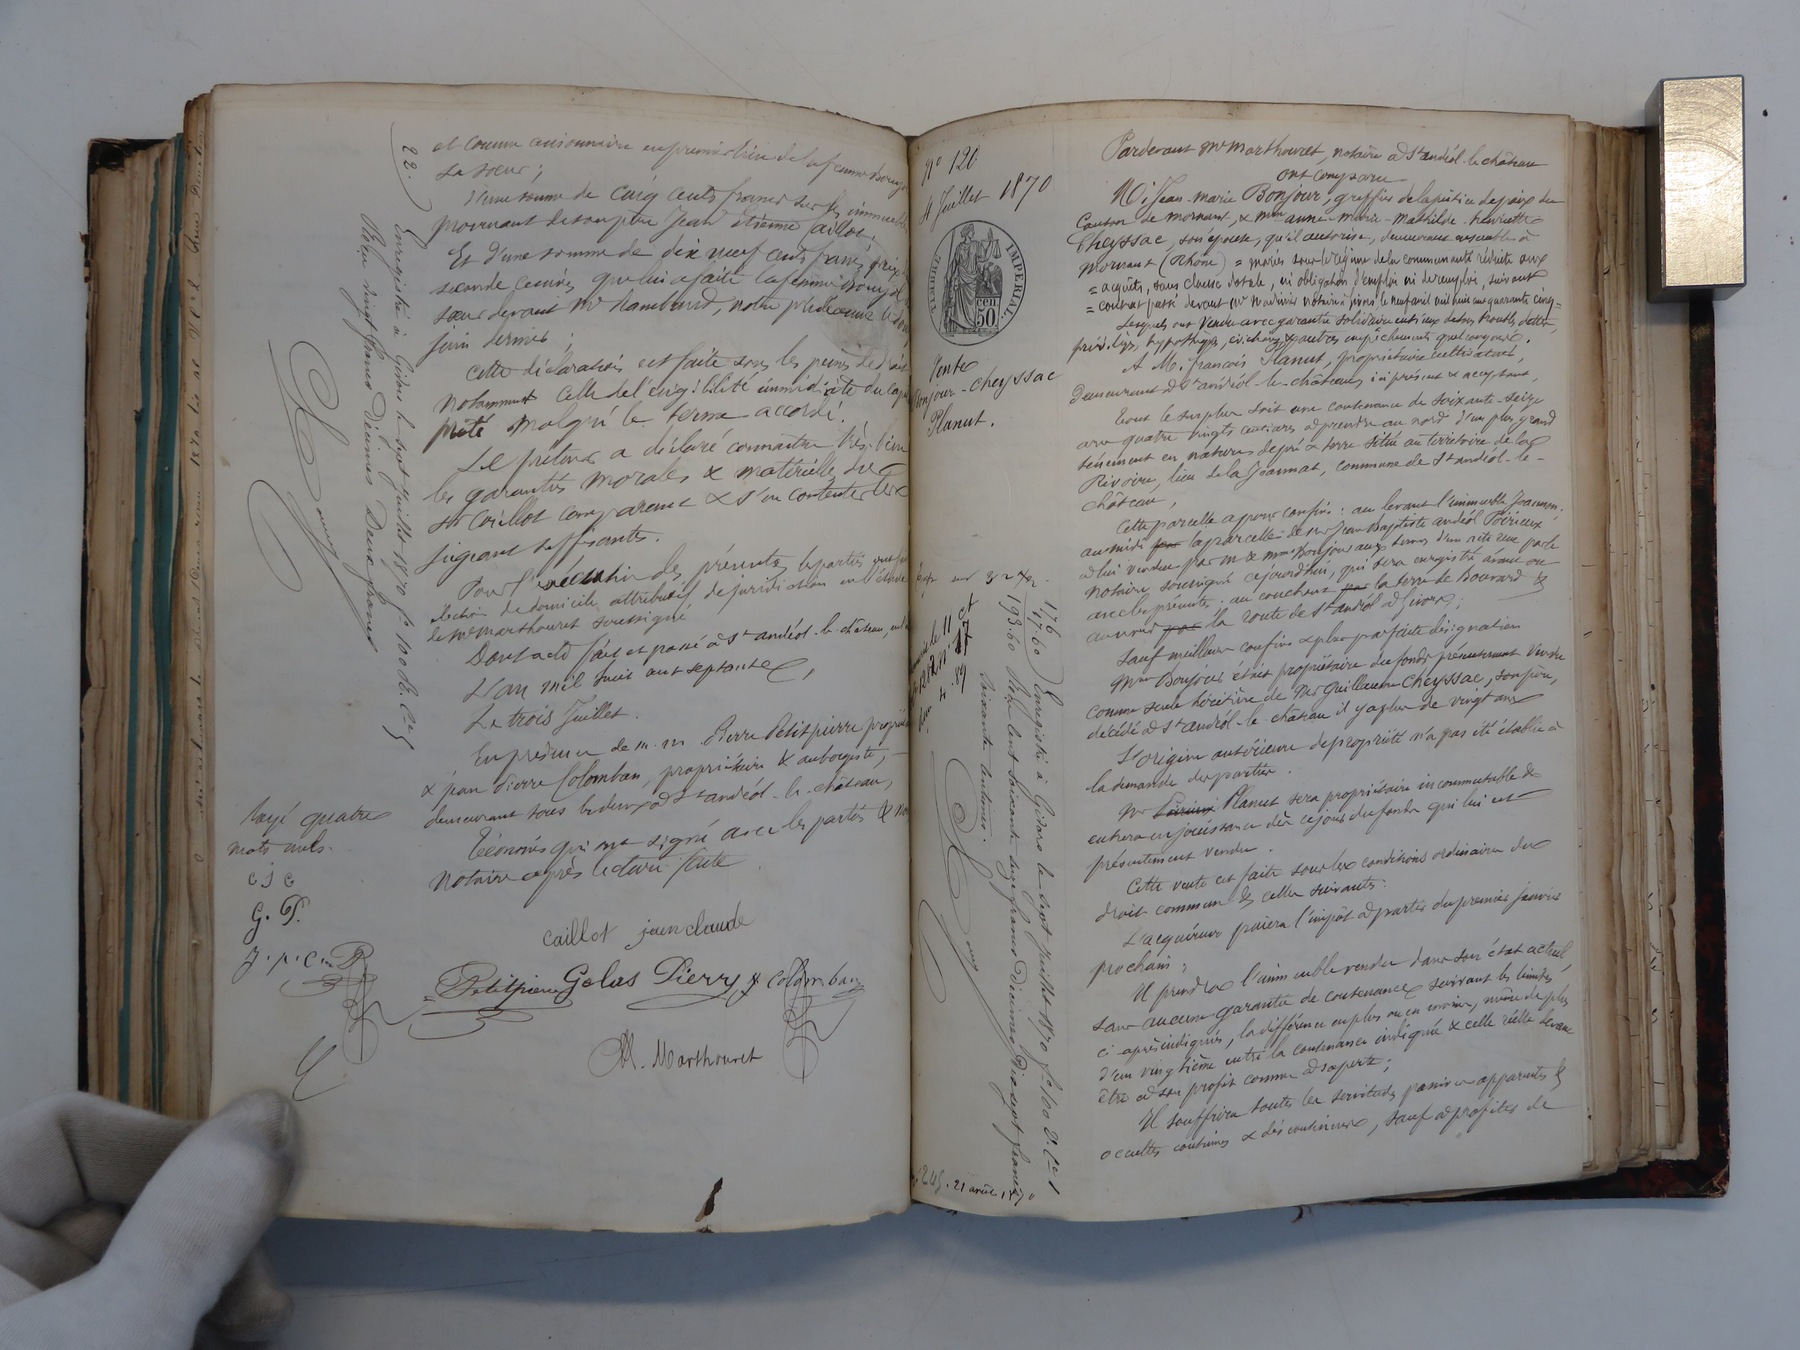 et comme cautionnaire en premier lieu de la femme
sa sœur ;
D'une somme de cinq cents francs sur les immeubles
mornant desonpère Jean Etienne Caillot,
Et d'une somme de dix neuf cents francs, prix
seconde cession que lui a faite la femme
sœur devant Me Hambourd, notre prédécesseur
juin dernier ;
Cette déclaration est faite sous les peines de droit
notamment celle de l'éxigibilité immédiate du
prêté malgré le terme accordé.
Le prêteur a déclaré connaitre très bien
les garanties morales & matérielles du
sr Caillot comparant & s'en contenter les
jugeant suffisantes.
Pour l'exécution des présentes les parties
élection de domicile attributif de juridiction en l'étude
de Me Marthouret soussigné
Dont acte fait et passé à St andéol-le-château,
L'an mil huit cent septante,
Le trois Juillet.
En présence de m.m. Pierre Petitpierre
& jean Pierre Colomban, propriétaire & aubergiste,
demeurant tous les deux à St andéol-le-château,
Témoins qui ont signé avec les parties & nous
notaire après lecture faite
22.
Enregistré à Givors le sept juillet 1870 fo 100
Reçu vingt francs Décimes Deux francs
Rayé quatre
mots nuls.
C J C
G. P.
J. P. C
caillot jean claude
Petitpierre Gelas Pierry J Colomban
M. Marthouret
No 120
4 Juillet 1870
TIMBRE IMPERIAL
50 cen
Vente
Bonjour-Cheyssac
Planut.
176
17.60
193.60
Enregistré à Givors le sept juillet 1870 fo 100
Reçu Cent soixante seize francs Décimes Dix sept francs
soixante centimes.
21 août 1870
Pardevant Me Marthouret, notaire à St andéol-le-château
ont comparu
M. Jean-marie Bonjour, greffier de la justice de paix du
Canton de mornant, & mme anne-marie-mathilde-henriette
Cheyssac, son épouse, qu'il autorise, demeurant ensemble à
mornant (Rhône) = mariés sous le régime de la communauté réduite aux
= acquêts, sans clause dotale, ni obligation d'emploi ni de remploi, suivant
= contrat passé devant Me notaire à Givors le neuf avril mil huit cent quarante cinq =
Lesquels ont Vendu avec garantie solidaire entr'eux de tous troubles, dettes,
privilèges, hypothèques, évictions & autres empêchements quelconques.
A M. françois Planut, propriétaire cultivateur,
demeurant à St andéol-le-château, ici présent & acceptant,
Tout le surplus soit une contenance de soixante-seize
ares quatre vingts centiares à prendre au nord d'un plus grand
tènement en nature de pré & terre situé au territoire de la
Rivoire, lieu de la Joannas, commune de St andéol-le-
château,
Cette parcelle a pour confins : au levant l'immeuble Joannon.
au midi par la parcelle de sr Jean Baptiste andéol Poirieux
à lui vendue par m & mme Bonjour aux termes d'un acte reçu par le
notaire, soussigné cejourd'hui, qui sera enregistré avant ou
avec les présentes. au couchant par la terre de Bouvard &
au nord par la route de St andéol à Givors ;
Sauf meilleurs confins & plus parfaite désignation
Mme Bonjour était propriétaire du fonds présentement vendu
comme seule héritière de Mr Guillaume Cheyssac, son père,
décédé à St andéol-le-château il y a plus de vingt ans
L'origine antérieure de propriété n'a pas été établie à
la demande des parties.
Mr Poirieux Planut sera propriétaire incommutable &
entrera en jouissance dès ce jour du fonds qui lui est
présentement vendu.
Cette vente est faite sous les conditions ordinaires du
droit commun & celles suivantes :
L'acquéreur paiera l'impôt à partir du premier janvier
prochain ;
Il prendra l'immeuble vendu dans son état actuel,
sans aucune garantie de contenance suivant les limites
ci après indiquées, la différence en plus ou en moins, même de plus
d'un vingtième entre la contenance indiquée & celle réelle devant
être à son profit comme à sa perte ;
Il souffrira toutes les servitudes passives apparentes &
occultes continues & discontinues, sauf à profiter de